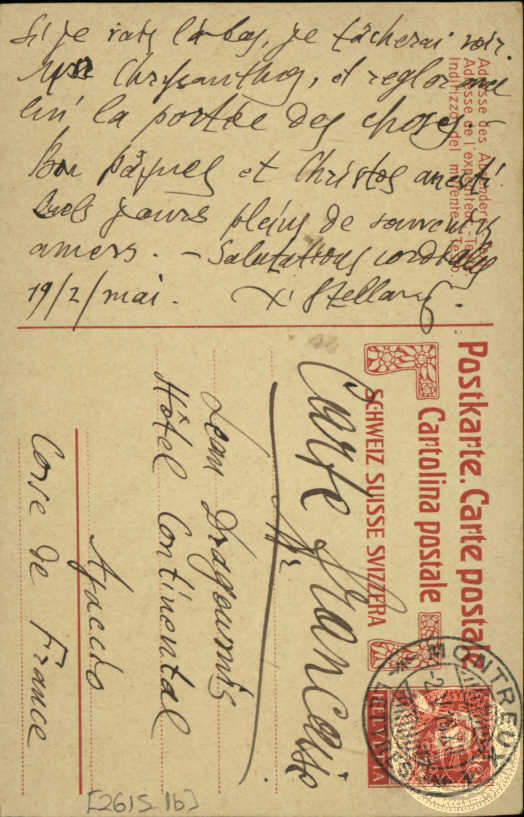 Si je vais là-bas, je tâcherai voir
Mgr Chrysanthos, et
la portée des choses.
Bon Pâques et Christos anesti
jours pleins de souvenirs
amers. – Salutations cordiales
19/2/mai.
Postkarte. Carte postale
Cartolina postale
SCHWEIZ SUISSE SVIZZERA
Adresse des
Adresse de l'expéditeur
Indirizzo del mittente
HELVETIA
MONTREUX
Carte Française
Jean Dragoumis
Hôtel Continental
Ajaccio
Corse de France